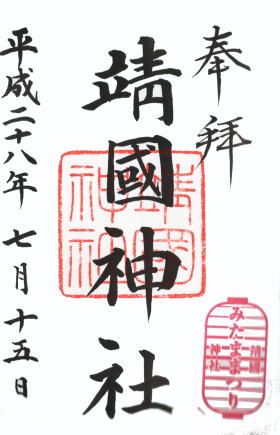 奉拝
靖國神社
平成二十八年七月十五日
靖國神社
みたままつり
靖國
神社